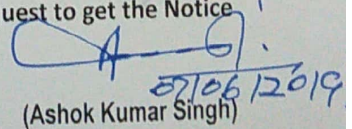 uest to get the Notice
07/06/2019
(Ashok Kumar Singh)